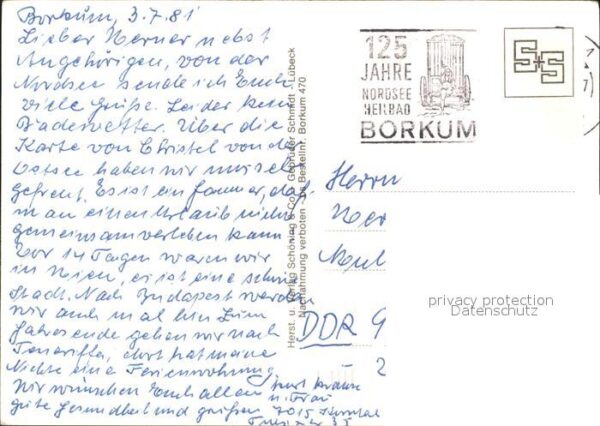 Borkum, 3.7.81
Lieber Werner nebst
Angehörigen, von der
Nordsee sende ich Euch
viele Grüße. Leider kein
Badewetter. Über die
Karte von Christel von der
Ostsee haben wir uns sehr
gefreut. Es ist ein Jammer, daß
man einen Urlaub nicht
gemeinsam verleben kann
Vor 14 Tagen waren wir
in Wien, es ist eine schöne
Stadt. Nach Budapest werden
wir auch mal hin. Zum
Jahresende gehen wir nach
Teneriffa, dort hat meine
Nichte eine Ferienwohnung
Wir wünschen Euch allen
gute Gesundheit und grüßen
u. Frau
7015
35
Herst. u. Verlag Schöning & Co + Gebrüder Schmidt - Lübeck
Nachahmung verboten - Bestellnr. Borkum 470
125
JAHRE
NORDSEE
HEILBAD
BORKUM
S+S
Herrn
Wer
DDR 9
2
privacy protection
Datenschutz